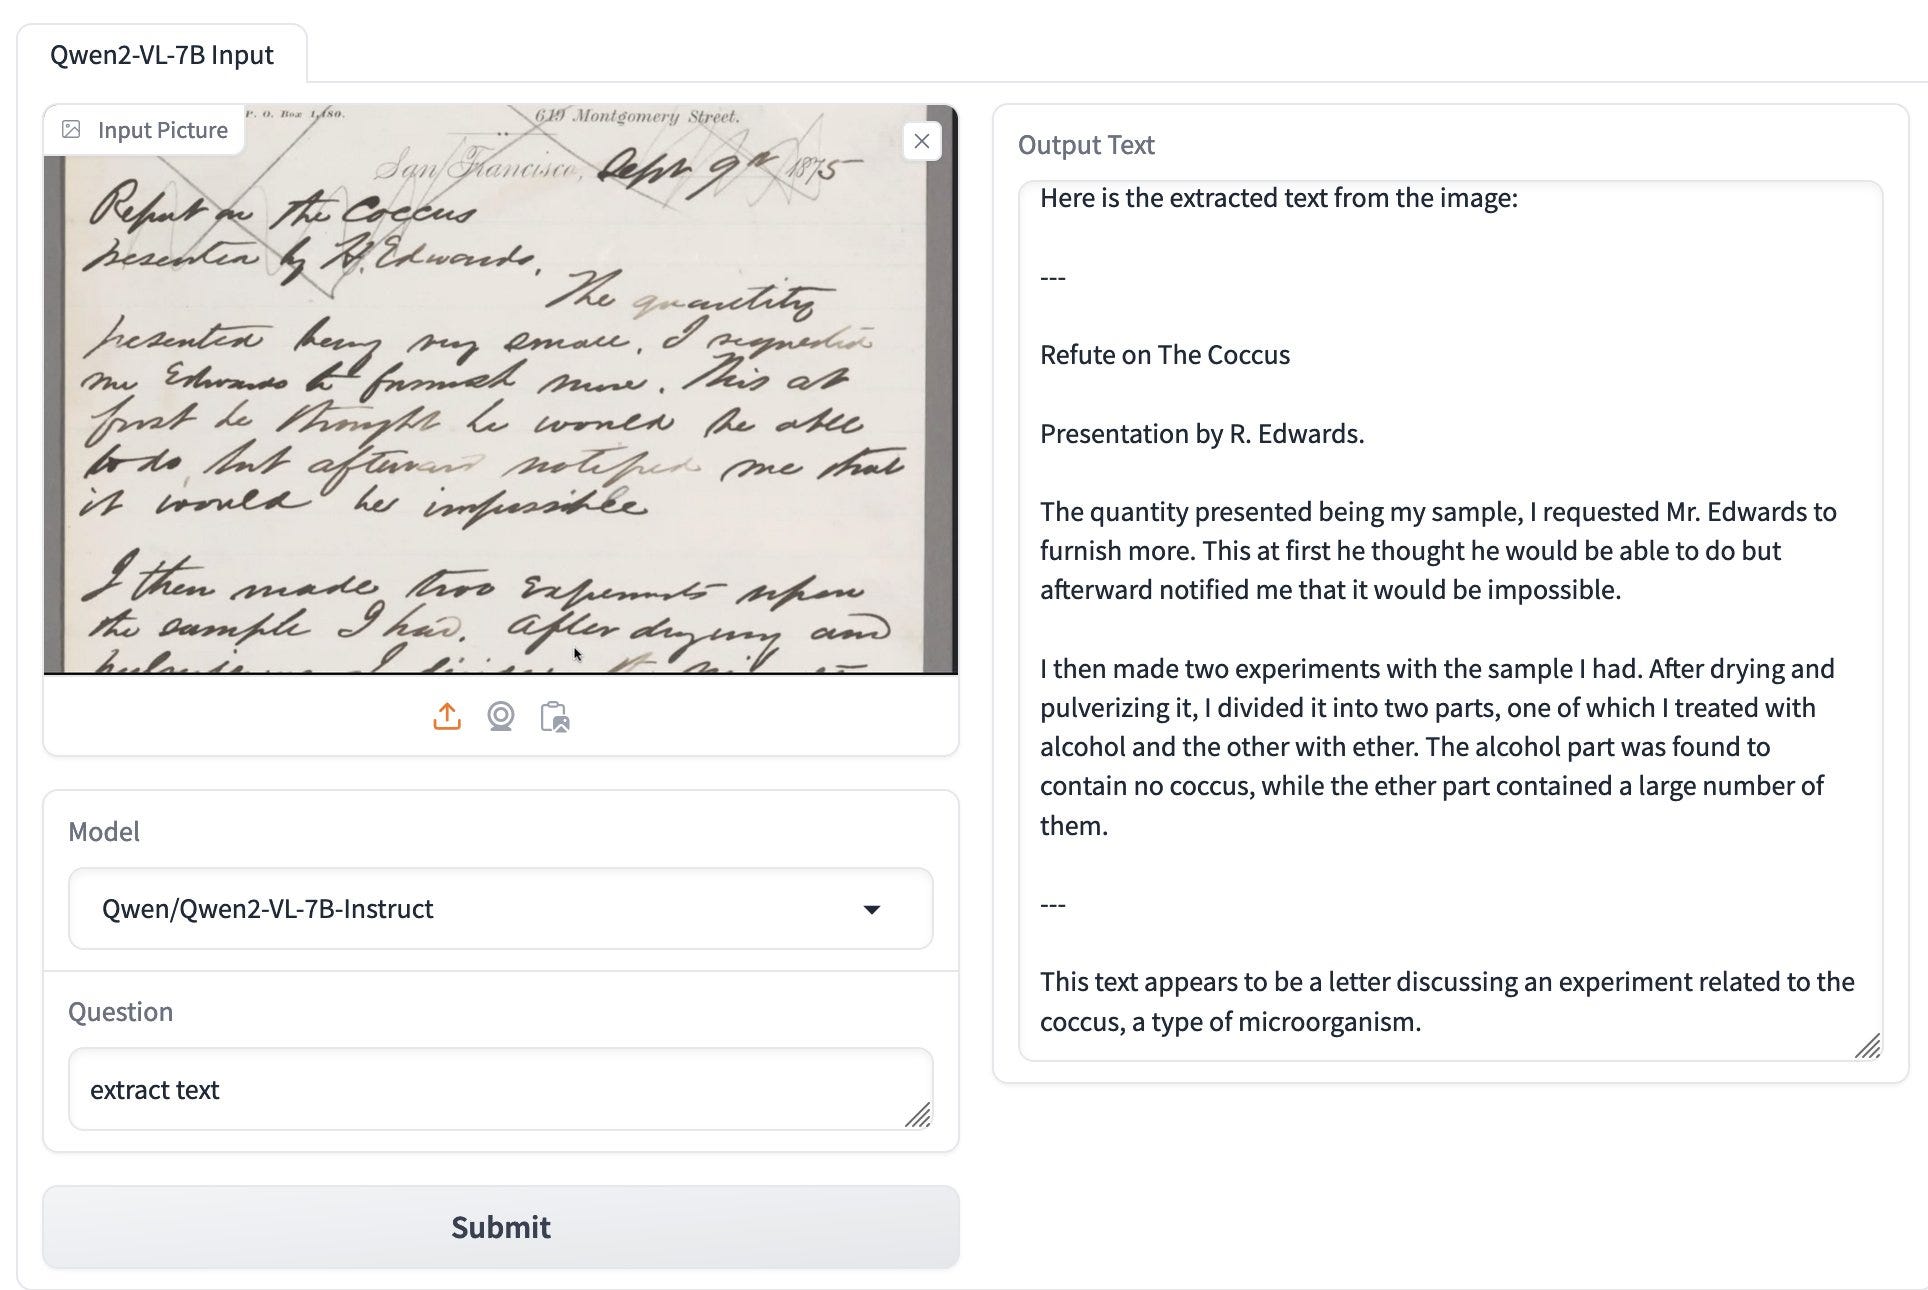 Qwen2-VL-7B Input
Input Picture
P. O. Box 1,180.
619 Montgomery Street.
San Francisco, Sept 9th 1875
Report on the Coccus
presented by H. Edwards.
The quantity
presented being very small, I requested
Mr Edwards to furnish more. This at
first he thought he would be able
to do, but afterward notified me that
it would be impossible
I then made two Experiments upon
the sample I had. After drying and
Model
Qwen/Qwen2-VL-7B-Instruct
Question
extract text
Submit
Output Text
Here is the extracted text from the image:
---
Refute on The Coccus
Presentation by R. Edwards.
The quantity presented being my sample, I requested Mr. Edwards to
furnish more. This at first he thought he would be able to do but
afterward notified me that it would be impossible.
I then made two experiments with the sample I had. After drying and
pulverizing it, I divided it into two parts, one of which I treated with
alcohol and the other with ether. The alcohol part was found to
contain no coccus, while the ether part contained a large number of
them.
---
This text appears to be a letter discussing an experiment related to the
coccus, a type of microorganism.